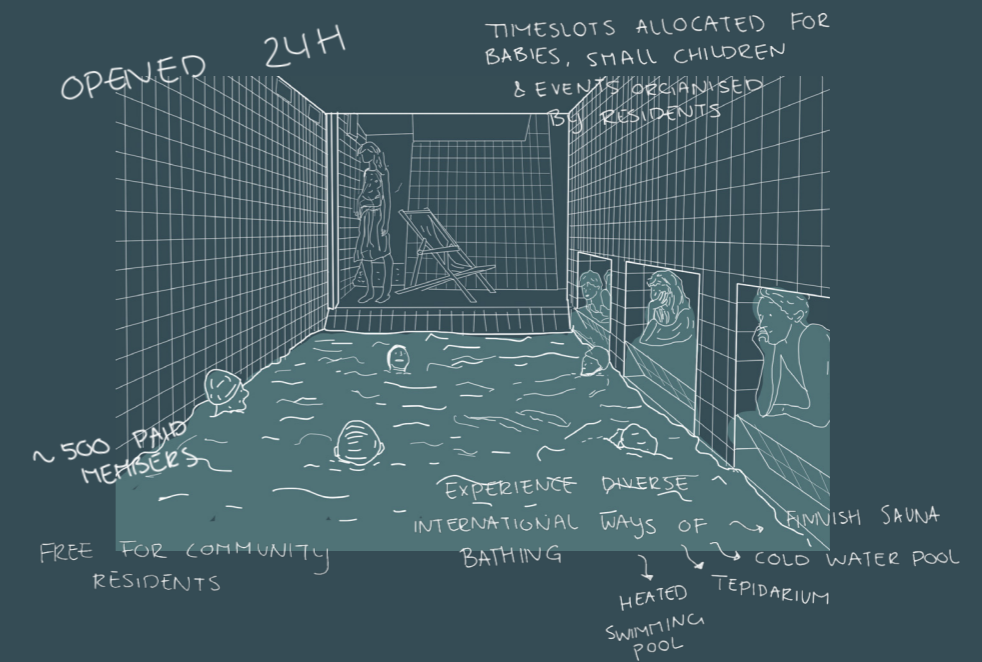 OPENED 24H
TIMESLOTS ALLOCATED FOR
BABIES, SMALL CHILDREN
& EVENTS ORGANISED
BY RESIDENTS
~ 500 PAID
MEMBERS
FREE FOR COMMUNITY
RESIDENTS
EXPERIENCE DIVERSE
INTERNATIONAL WAYS OF
BATHING
FINNISH SAUNA
COLD WATER POOL
TEPIDARIUM
HEATED
SWIMMING
POOL